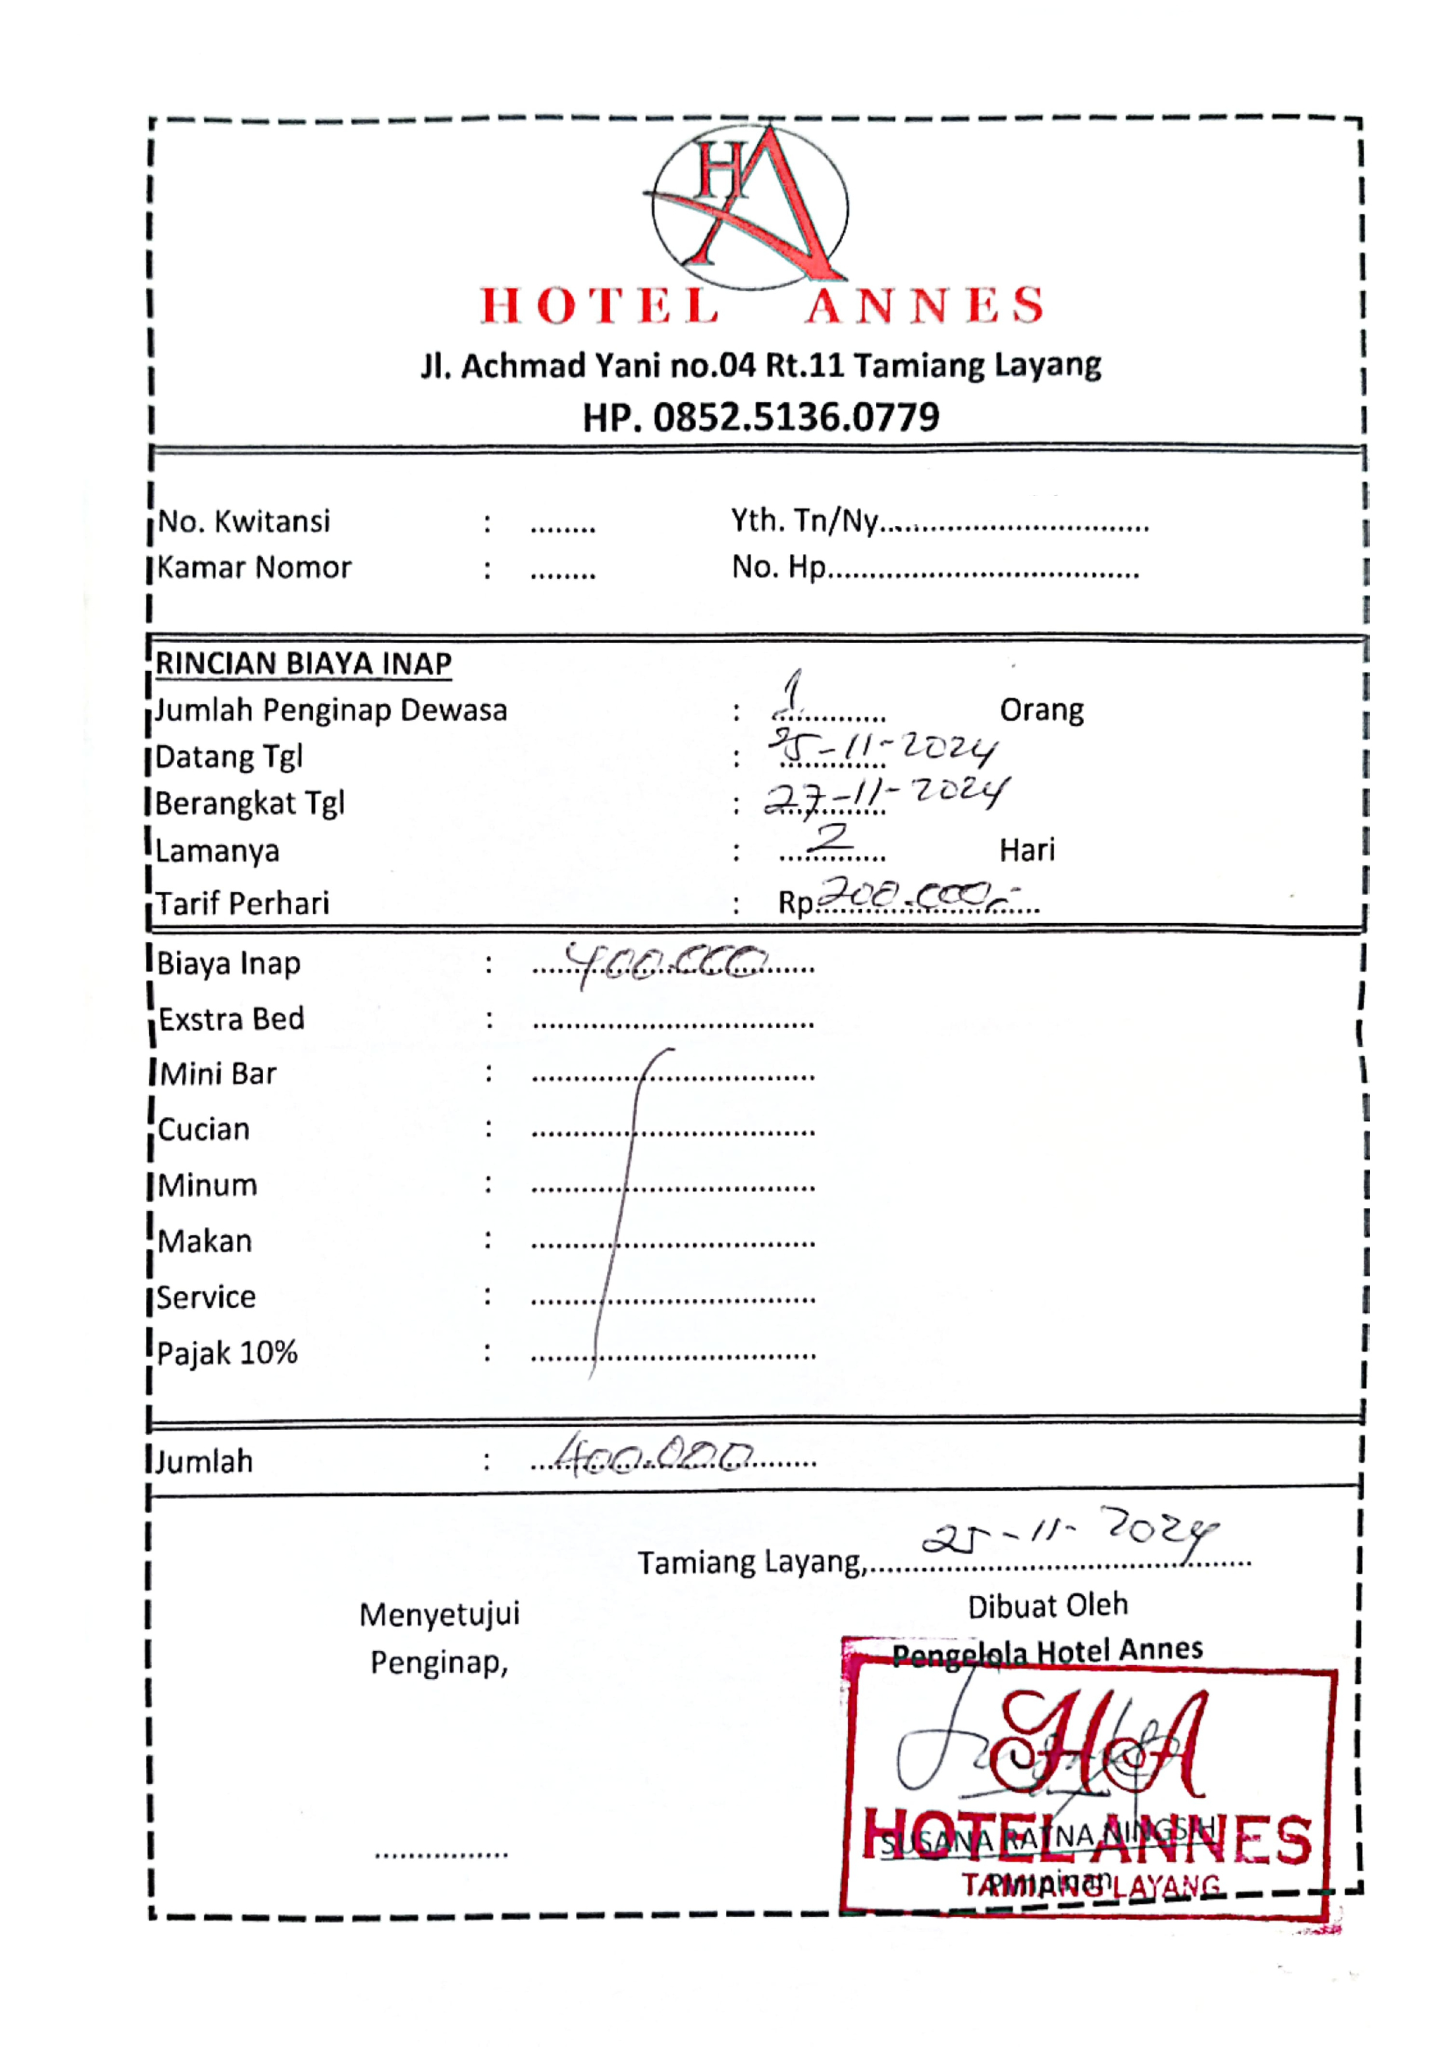 HA
HOTEL ANNES
Jl. Achmad Yani no.04 Rt.11 Tamiang Layang
HP. 0852.5136.0779
No. Kwitansi : ........ Yth. Tn/Ny..............................
Kamar Nomor : ........ No. Hp.......................................
RINCIAN BIAYA INAP
Jumlah Penginap Dewasa : 1 Orang
Datang Tgl : 25-11-2024
Berangkat Tgl : 27-11-2024
Lamanya : 2 Hari
Tarif Perhari : Rp. 200.000,-
Biaya Inap : 400.000
Exstra Bed : ....................................
Mini Bar : ....................................
Cucian : ....................................
Minum : ....................................
Makan : ....................................
Service : ....................................
Pajak 10% : ....................................
Jumlah : 400.000
Tamiang Layang, 25-11-2024
Menyetujui Dibuat Oleh
Penginap, Pengelola Hotel Annes
HA
HOTEL ANNES
................. SUSANA RATNA NINGSIH
Pimpinan
TAMIANG LAYANG